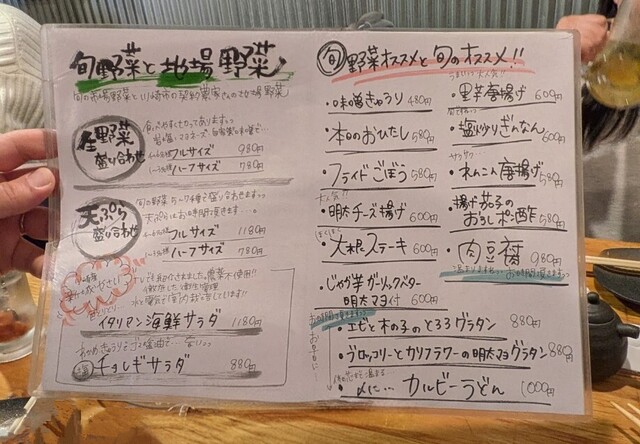 旬野菜と地場野菜
旬の市場野菜と川崎市の契約農家さんの地場野菜
生野菜
盛り合わせ
食べやすく切ってあります。
フルサイズ 980円
ハーフサイズ 780円
天ぷら
盛り合わせ
旬の野菜5〜7種で盛り合わせます
天ぷらはお時間頂きます…
フルサイズ 1180円
ハーフサイズ 780円
イタリアン海鮮サラダ 1180円
チョレギサラダ 880円
旬野菜オススメと旬のオススメ!!
・味噌きゅうり 480円
・本日のおひたし 580円
・フライドごぼう 580円
・明太チーズ揚げ 600円
・大根ステーキ 600円
・じゃが芋ガーリックバター
明太マヨ付 600円
・里芋唐揚げ 600円
・塩炒りぎんなん 600円
・れんこん唐揚げ 580円
・揚げ茄子の
おろしポン酢 580円
・肉豆腐 980円
・エビと木の子のとろろグラタン 880円
・ブロッコリーとカリフラワーの明太マヨグラタン 880円
カルビーうどん 1000円